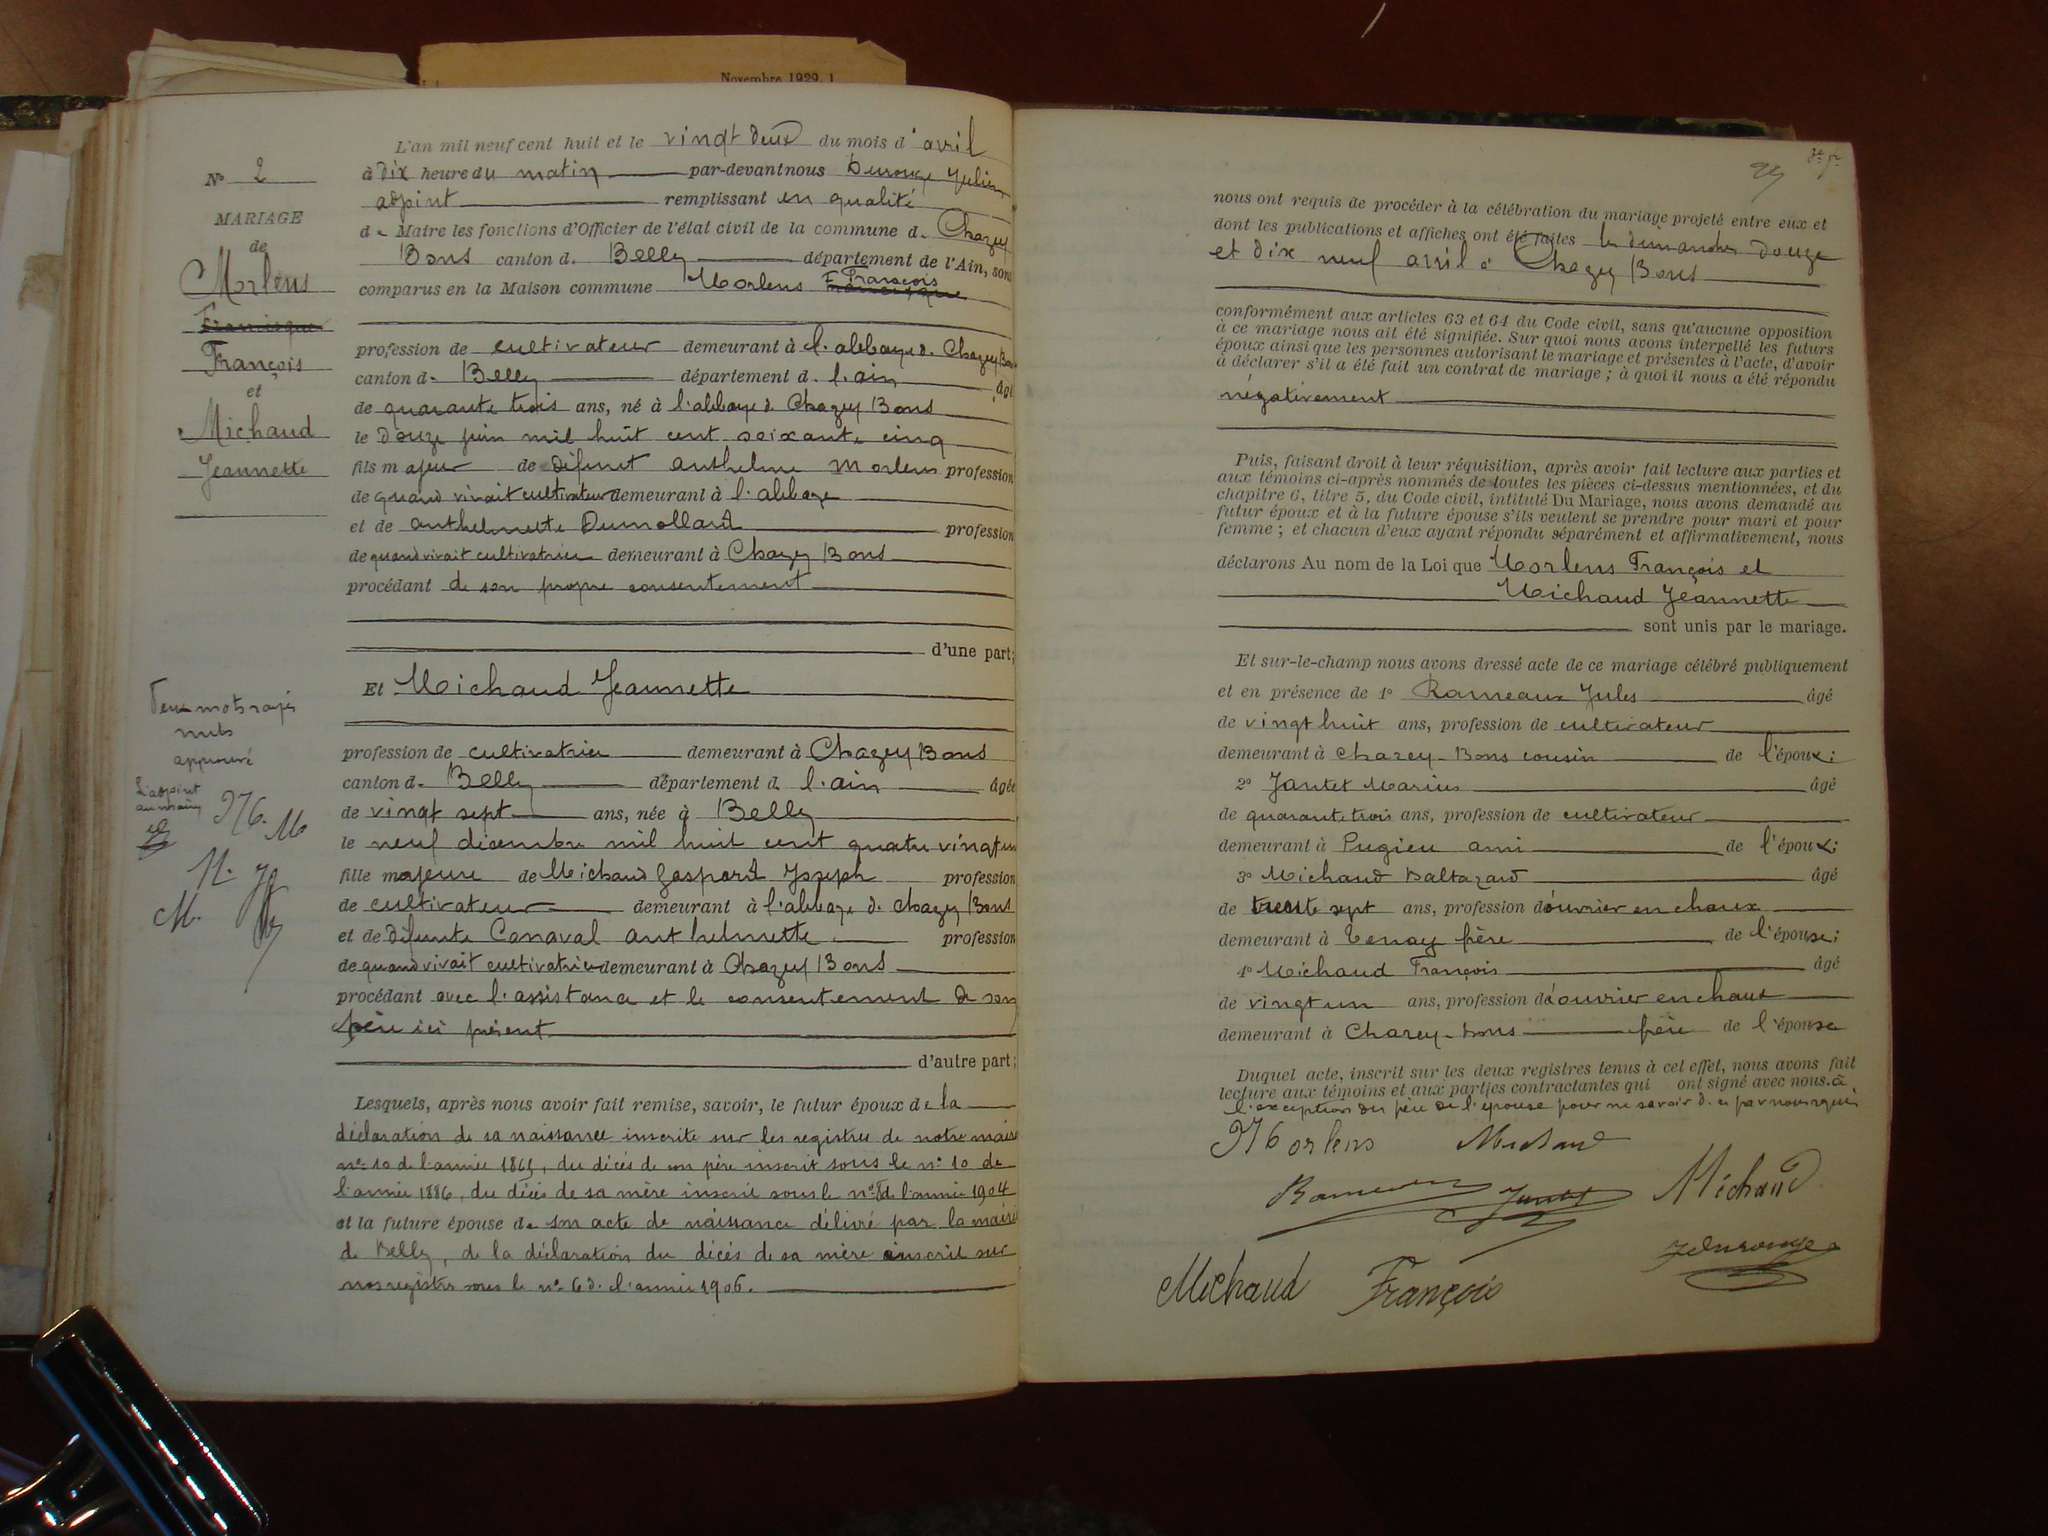 Novembre 1929. 1
N° 2
MARIAGE
de
Morlens
Francisque
François
et
Michaud
Jeannette
Deux mots rayés
nuls
approuvé
L'adjoint
au maire
M. M
M. J
M.
L'an mil neuf cent huit et le vingt deux du mois d'avril
à dix heure du matin par-devant nous Durouge Julien
adjoint remplissant en qualité
de Maire les fonctions d'Officier de l'état civil de la commune de Chazey
Bons canton de Belley département de l'Ain, sont
comparus en la Maison commune Morlens François
profession de cultivateur demeurant à l'abbaye de Chazey Bons
canton de Belley département de l'ain âgé
de quarante trois ans, né à l'abbaye de Chazey Bons
le Douze juin mil huit cent soixante cinq
fils majeur de défunt anthelme Morlens profession
de quand vivait cultivateur demeurant à l'abbaye
et de anthelmette Dumollard profession
de quand vivait cultivatrice demeurant à Chazey Bons
procédant de son propre consentement
d'une part;
Et Michaud Jeannette
profession de cultivatrice demeurant à Chazey Bons
canton de Belley département de l'ain âgée
de vingt sept ans, née à Belley
le neuf décembre mil huit cent quatre vingt un
fille majeure de Michaud Gaspard Joseph profession
de cultivateur demeurant à l'abbaye de Chazey Bons
et de défunte Canaval anthelmette profession
de quand vivait cultivatrice demeurant à Chazey Bons
procédant avec l'assistance et le consentement de son
père ici présent
d'autre part;
Lesquels, après nous avoir fait remise, savoir, le futur époux de la
déclaration de sa naissance inscrite sur les registres de notre mairie
n° 10 de l'année 1865, du décès de son père inscrit sous le n° 10 de
l'année 1886, du décès de sa mère inscrit sous le n° 8 de l'année 1904
et la future épouse de son acte de naissance délivré par la mairie
de Belley, de la déclaration du décès de sa mère inscrit sur
nos registres sous le n° 6 de l'année 1906.
nous ont requis de procéder à la célébration du mariage projeté entre eux et
dont les publications et affiches ont été faites les dimanches douze
et dix neuf avril à Chazey Bons
conformément aux articles 63 et 64 du Code civil, sans qu'aucune opposition
à ce mariage nous ait été signifiée. Sur quoi nous avons interpellé les futurs
époux ainsi que les personnes autorisant le mariage et présentes à l'acte, d'avoir
à déclarer s'il a été fait un contrat de mariage; à quoi il nous a été répondu
négativement
Puis, faisant droit à leur réquisition, après avoir fait lecture aux parties et
aux témoins ci-après nommés de toutes les pièces ci-dessus mentionnées, et du
chapitre 6, titre 5, du Code civil, intitulé Du Mariage, nous avons demandé au
futur époux et à la future épouse s'ils veulent se prendre pour mari et pour
femme; et chacun d'eux ayant répondu séparément et affirmativement, nous
déclarons Au nom de la Loi que Morlens François et
Michaud Jeannette
sont unis par le mariage.
Et sur-le-champ nous avons dressé acte de ce mariage célébré publiquement
et en présence de 1° Rameaux Jules âgé
de vingt huit ans, profession de cultivateur
demeurant à Chazey-Bons cousin de l'époux;
2° Jantet Marius âgé
de quarante trois ans, profession de cultivateur
demeurant à Pugieu ami de l'époux;
3° Michaud Baltazard âgé
de trente sept ans, profession d'ouvrier en chaux
demeurant à Tenay frère de l'épouse;
4° Michaud François âgé
de vingt un ans, profession d'ouvrier en chaux
demeurant à Chazey-Bons frère de l'épouse
Duquel acte, inscrit sur les deux registres tenus à cet effet, nous avons fait
lecture aux témoins et aux parties contractantes qui ont signé avec nous à
l'exception du père de l'épouse pour ne savoir de ce par nous requis
Morlens Michaud
Rameaux Jantet Michaud
Michaud François JDurouge